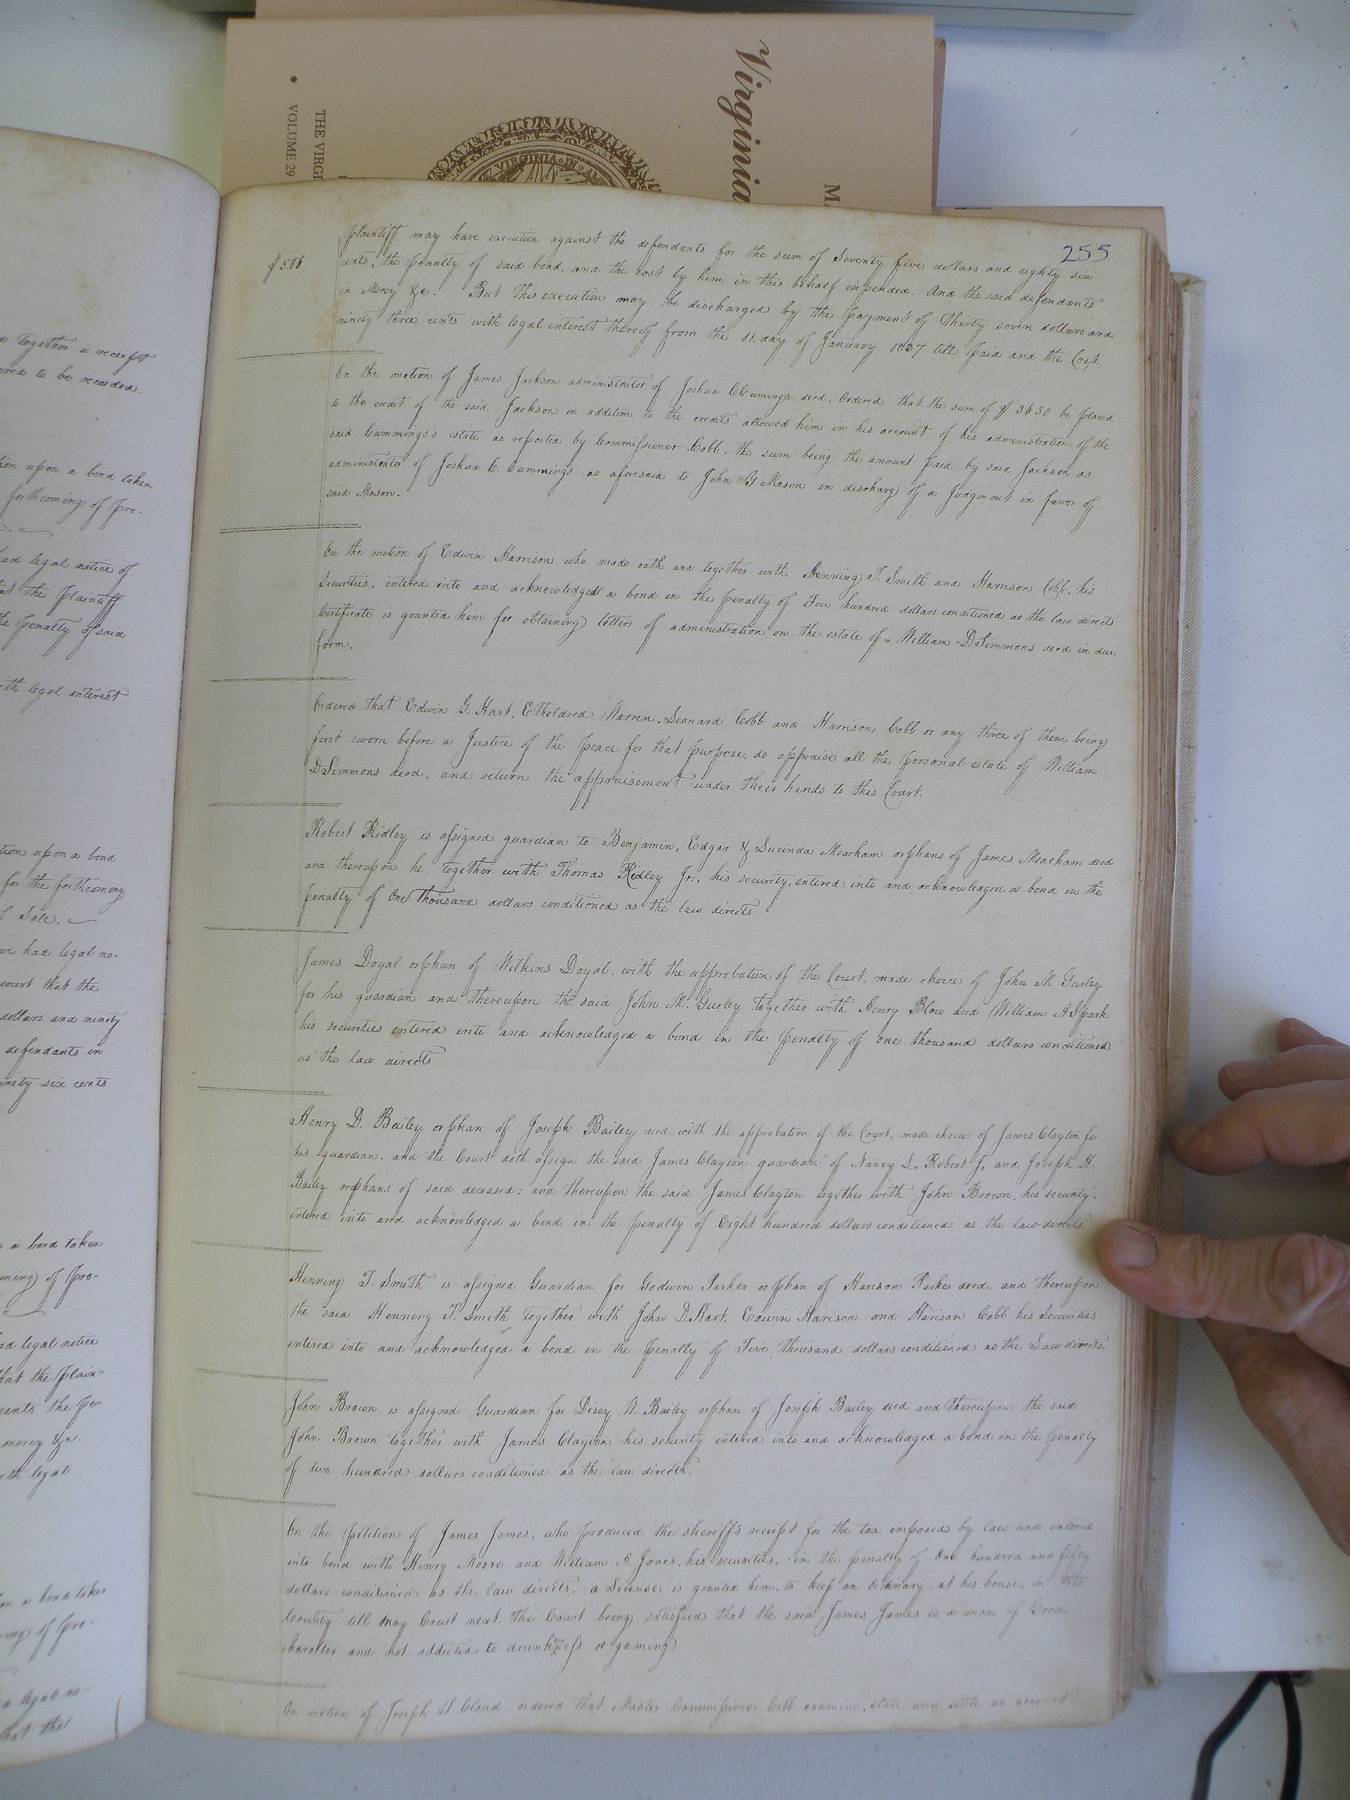 Virginia
M.
THE VIRGI
VOLUME 29
VIRGINIA IN
255
plaintiff may have execution against the defendants for the sum of Seventy five dollars and eighty six
$ 5.66
cents, the penalty of said bond, and the cost by him in this behalf expended. And the said defendants
in Mercy &c. But this execution may be discharged by the payment of Thirty seven dollars and
ninety three cents with legal interest thereof from the 11. day of January 1837 till paid and the Cost.
On the motion of James Jackson administrator of Joshua C Cummings decd. Ordered that the sum of $ 36 50 be placed
to the credit of the said Jackson in addition to the credits allowed him in his account of his administration of the
said Cummings's estate as reported by Commissioner Cobb, the sum being the amount paid by said Jackson as
administrator of Joshua C. Cummings as aforesaid to John Y Mason in discharg of a Judgment in favor of
said Mason.
On the motion of Edwin Harrison who made oath and together with Henning T. Smith and Harrison Cobb, his
Securities, entered into and acknowledged a bond in the penalty of Five hundred dollars conditioned as the law directs
Certificate is granted him for obtaining letters of administration on the estate of William D Simmons decd in due
form.
Ordered that Edwin G. Hart, Etheldred Warren, Leonard Cobb and Harrison Cobb or any three of them being
first sworn before a Justice of the peace for that purpose, do appraise all the personal estate of William
D Simmons decd. and return the appraisement under their hands to this Court.
Robert Ridley is assigned guardian to Benjamin, Edgar & Lucinda Meacham orphans of James Meacham decd
and thereupon he together with Thomas Ridley Jr. his security, entered into and acknowledged a bond in the
penalty of One thousand dollars conditioned as the law directs
James Doyal orphan of Wilkins Doyal, with the approbation of the Court, made choice of John M Gurley
for his guardian and thereupon the said John M. Gurley together with Henry Blow and William A Spark
his securities entered into and acknowledged a bond in the penalty of one thousand dollars conditioned
as the law directs
Henry D. Bailey orphan of Joseph Bailey decd with the approbation of the Court, made choice of James Clayton for
his guardian, and the Court doth assign the said James Clayton guardian of Nancy L, Robert J, and Joseph H.
Bailey orphans of said deceased; and thereupon the said James Clayton together with John Brown, his security,
entered into and acknowledged a bond in the penalty of Eight hundred dollars conditioned as the law directs.
Henning T. Smith is assigned Guardian for Godwin Parker orphan of Harison Parker decd. and thereupon
the said Henning T. Smith together with John D. Hart, Edwin Harison and Harison Cobb his Securities
entered into and acknowledged a bond in the penalty of Five thousand dollars conditioned as the Law directs.
John Brown is assigned Guardian for Disey A. Bailey orphan of Joseph Bailey decd and thereupon the said
John Brown together with James Clayton his security entered into and acknowledged a bond in the penalty
of two hundred dollars conditioned as the law directs.
On the petition of James James, who produced the sheriff's receipt for the tax imposed by law and entered
into bond with Henry Moore and William R Jones, his securities, in the penalty of One hundred and fifty
dollars conditioned as the law directs, a License is granted him to keep an Ordinary at his house in this
County till May Court next, the Court being satisfied that the said James James is a man of Good
character and not addicted to drunkness or gaming
On motion of Joseph T Claud ordered that Master Commissioner Cobb examine, state and settle an account
together a receipt
to be recorded.
upon a bond taken
forthcoming of pro-
legal notice of
the plaintiff
the penalty of said
with legal interest
upon a bond
for the forthcoming
of Sale.
had legal no-
court that the
dollars and ninety
defendants in
ninety six cents
a bond taken
of pro-
legal notice
that the plain-
the pe
mercy &c.
with legal
on a bond taken
of pro-
a legal no-
that the